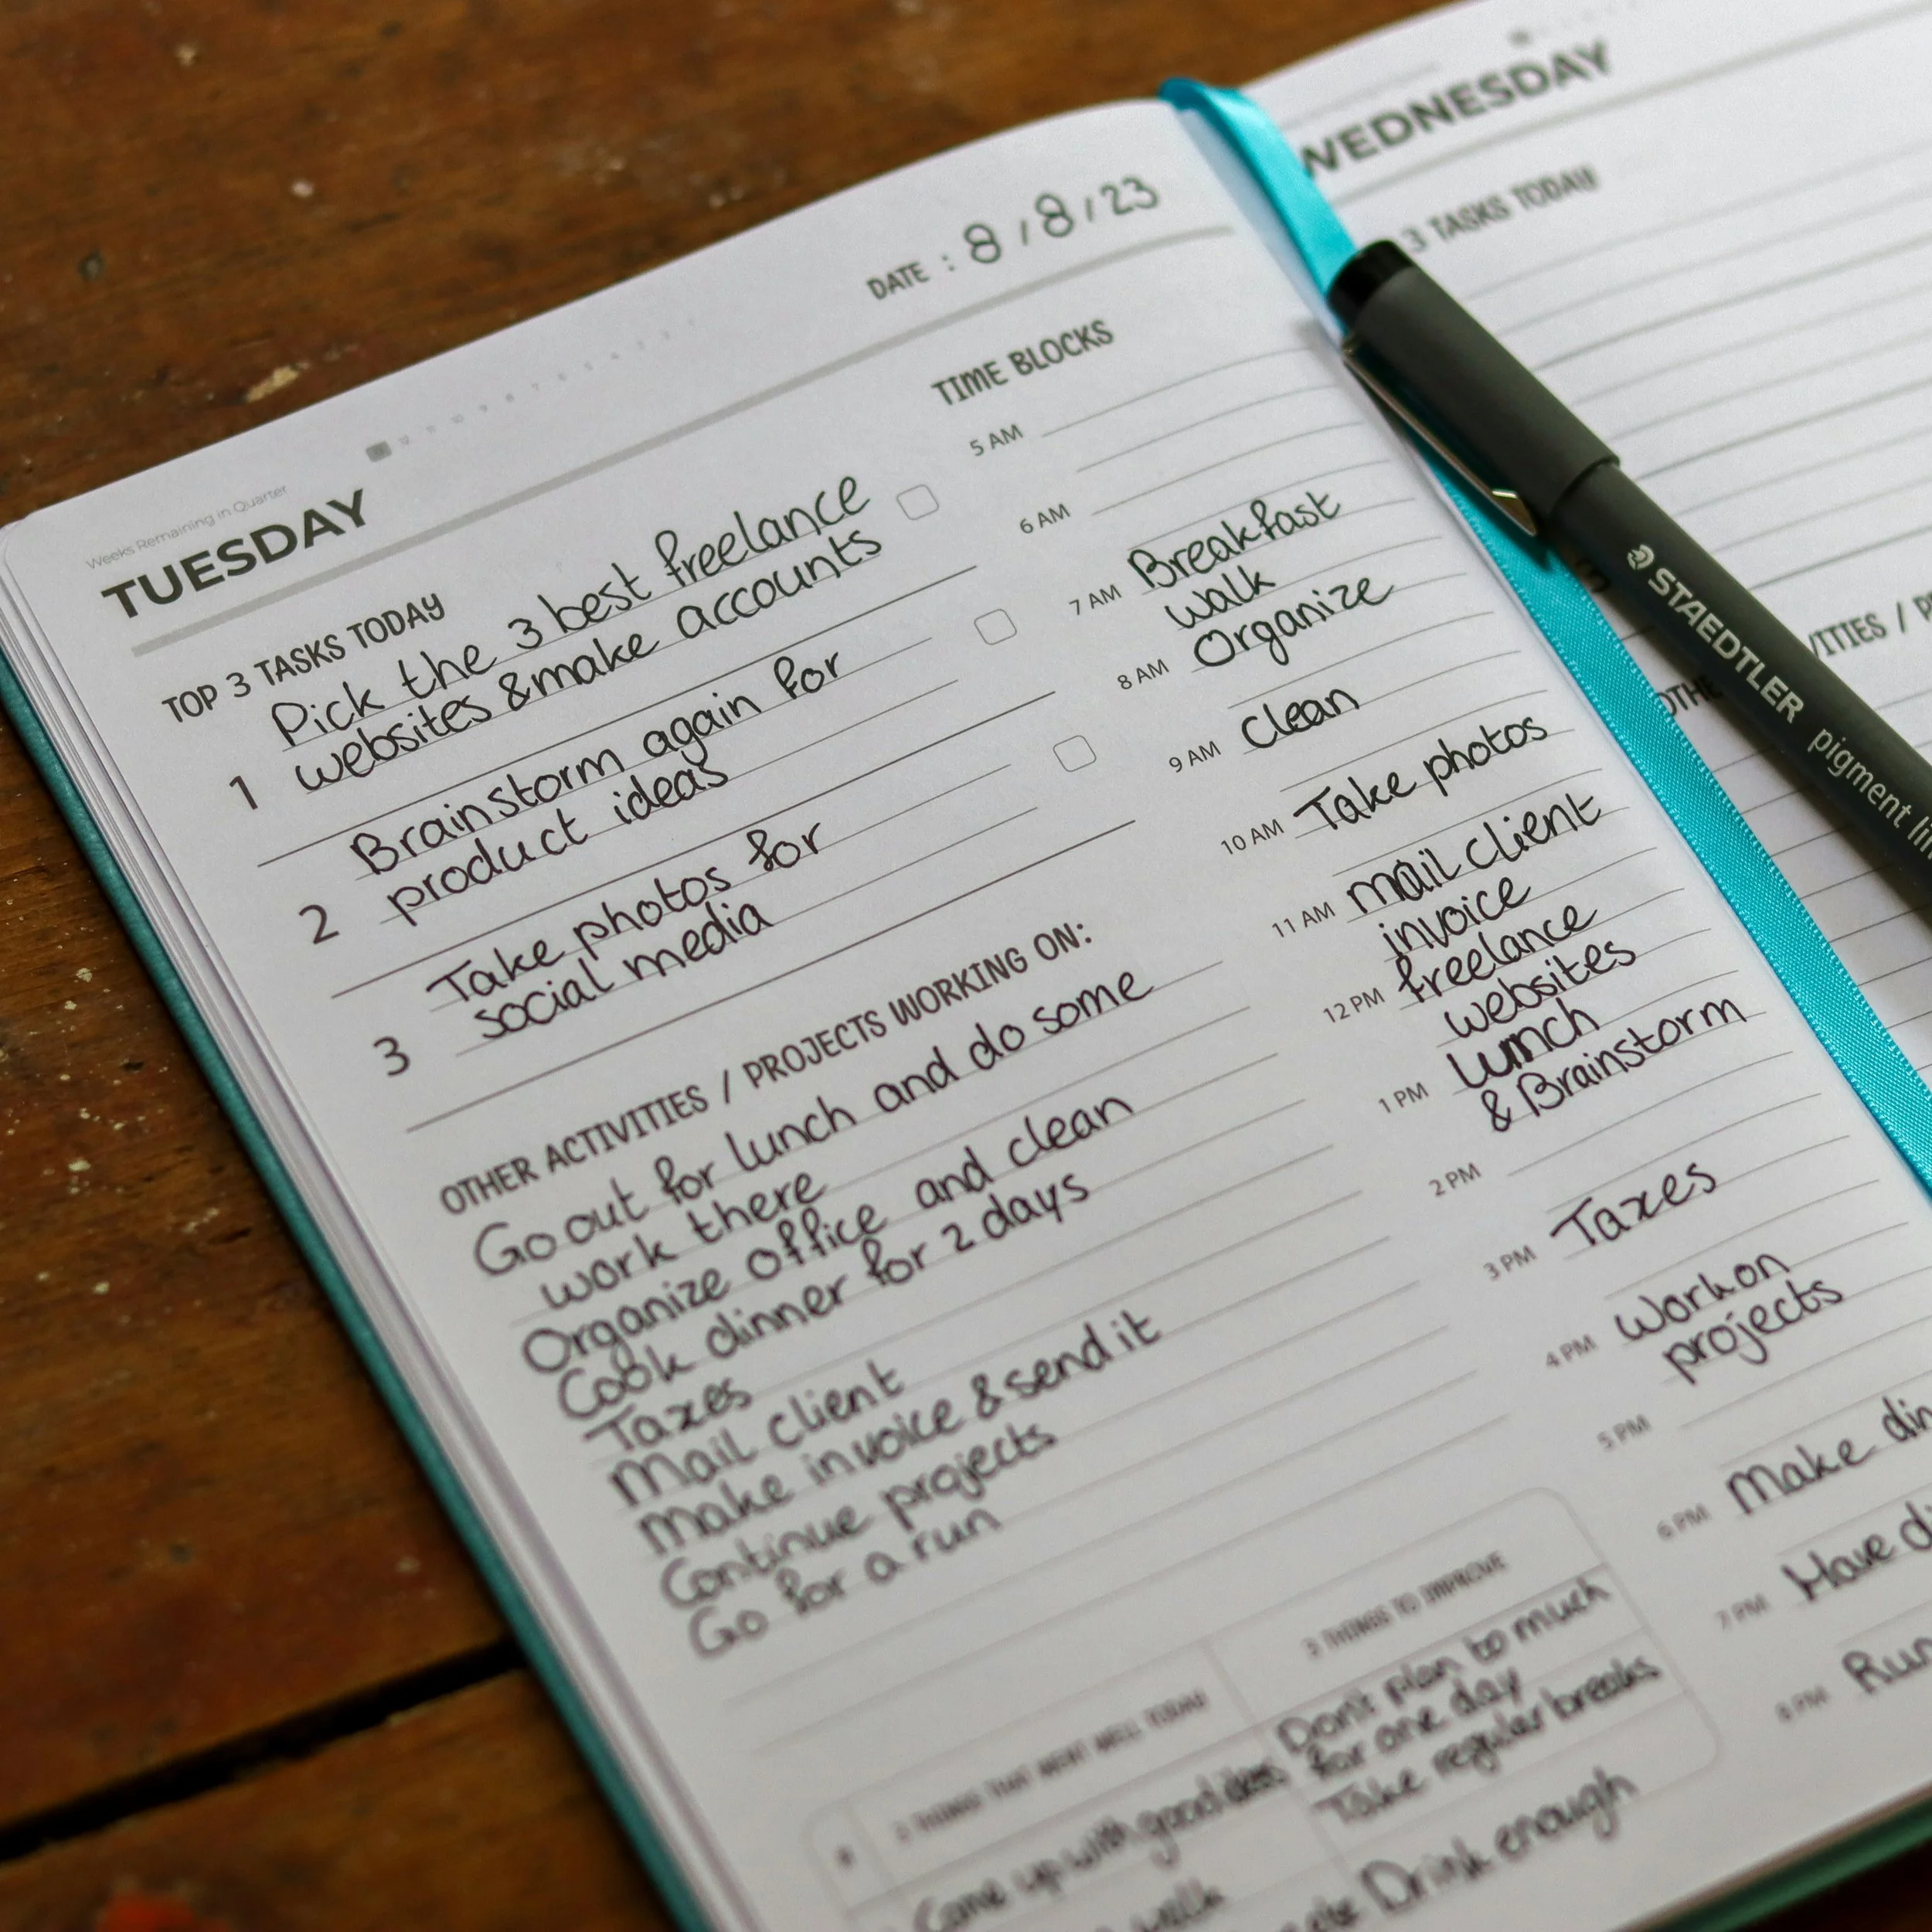 Weeks Remaining in Quarter
TUESDAY
DATE : 8/8/23
TOP 3 TASKS TODAY
1 Pick the 3 best freelance
websites & make accounts
2 Brainstorm again for
product ideas
3 Take photos for
social media
OTHER ACTIVITIES / PROJECTS WORKING ON:
Go out for lunch and do some
work there
Organize office and clean
Cook dinner for 2 days
Taxes
Mail client
Make invoice & send it
Continue projects
Go for a run
3 THINGS THAT WENT WELL TODAY
Come up with good ideas
walk
3 THINGS TO IMPROVE
Don't plan to much
for one day
Take regular breaks
Drink enough
TIME BLOCKS
5 AM
6 AM
7 AM Breakfast
walk
8 AM Organize
9 AM Clean
10 AM Take photos
11 AM mail client
invoice
12 PM freelance
websites
lunch
1 PM & Brainstorm
2 PM
3 PM Taxes
4 PM Work on
projects
5 PM
6 PM Make din
7 PM Have di
8 PM Run
WEDNESDAY
3 TASKS TODAY
OTHE
VITIES / P
STAEDTLER pigment lin